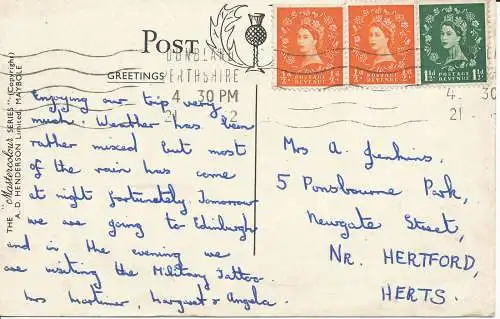 Post
GREETINGS
THE "Mastercolour SERIES": (Copyright)
A. D. HENDERSON Limited, MAYBOLE
PERTHSHIRE
4 30 PM
21
2
½D POSTAGE REVENUE ½D
½D POSTAGE REVENUE ½D
1½D POSTAGE REVENUE 1½D
4. 30
21
Enjoying our trip very
much. Weather has been
rather mixed but most
of the rain has come
at night fortunately. Tomorrow
we are going to Edinburgh
and in the evening we
are visiting the Military Tattoo.
Mrs Mortimer, Margaret & Angela.
Mrs A. Jenkins.
5 Ponsbourne Park,
Newgate Street,
NR. HERTFORD,
HERTS.